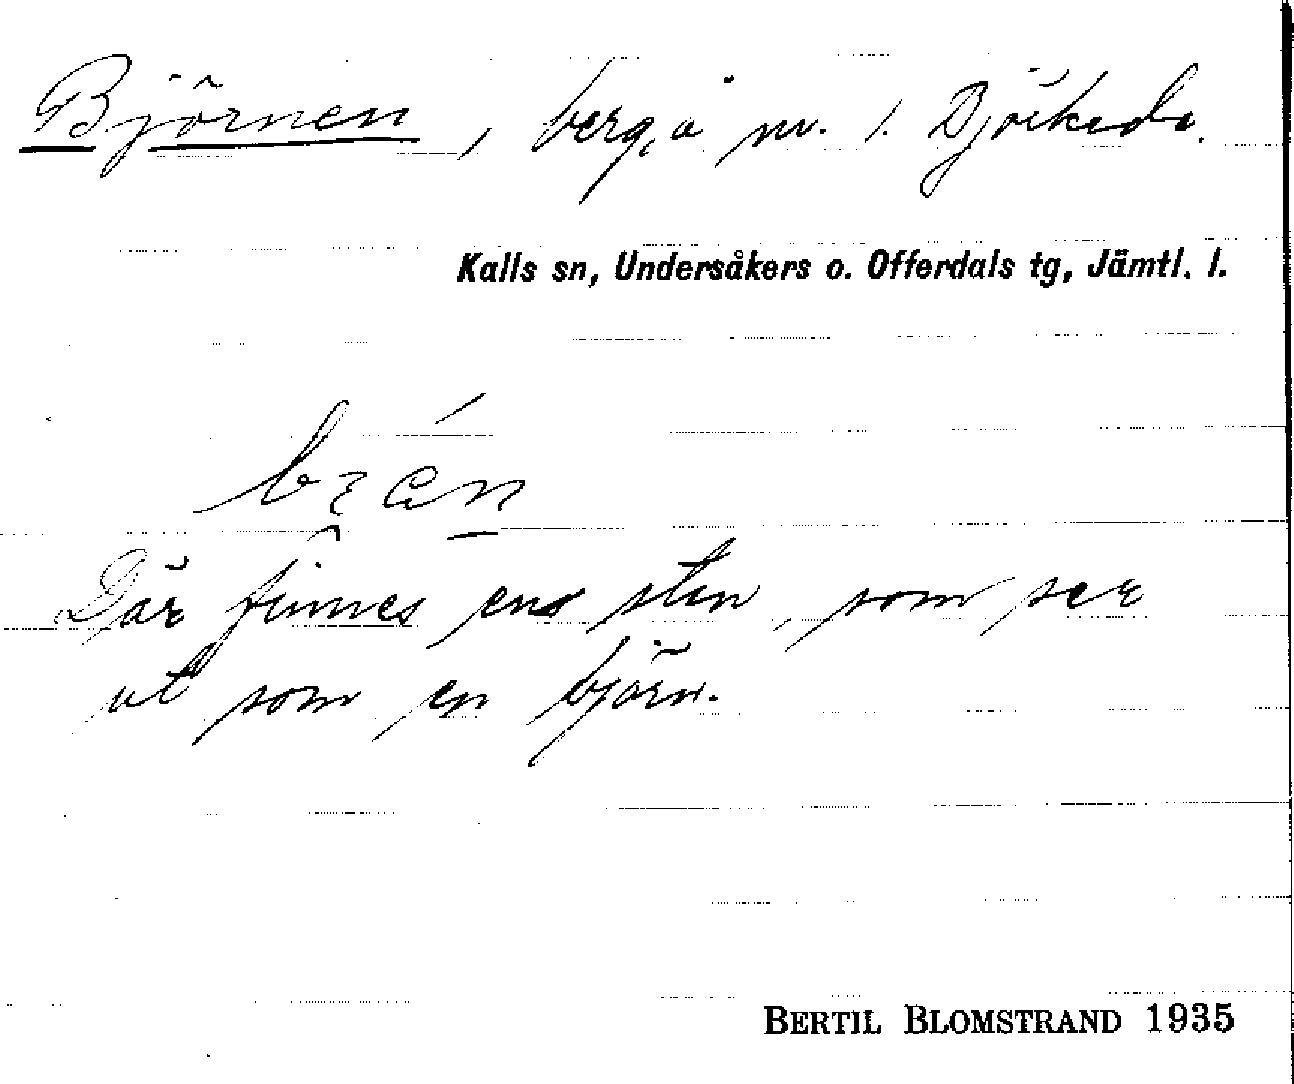 Björnen, berg, å nv. l. Björkede.
Kalls sn, Undersåkers o. Offerdals tg, Jämtl. l.
Där finnes en sten, som ser
ut som en björn.
BERTIL BLOMSTRAND 1935